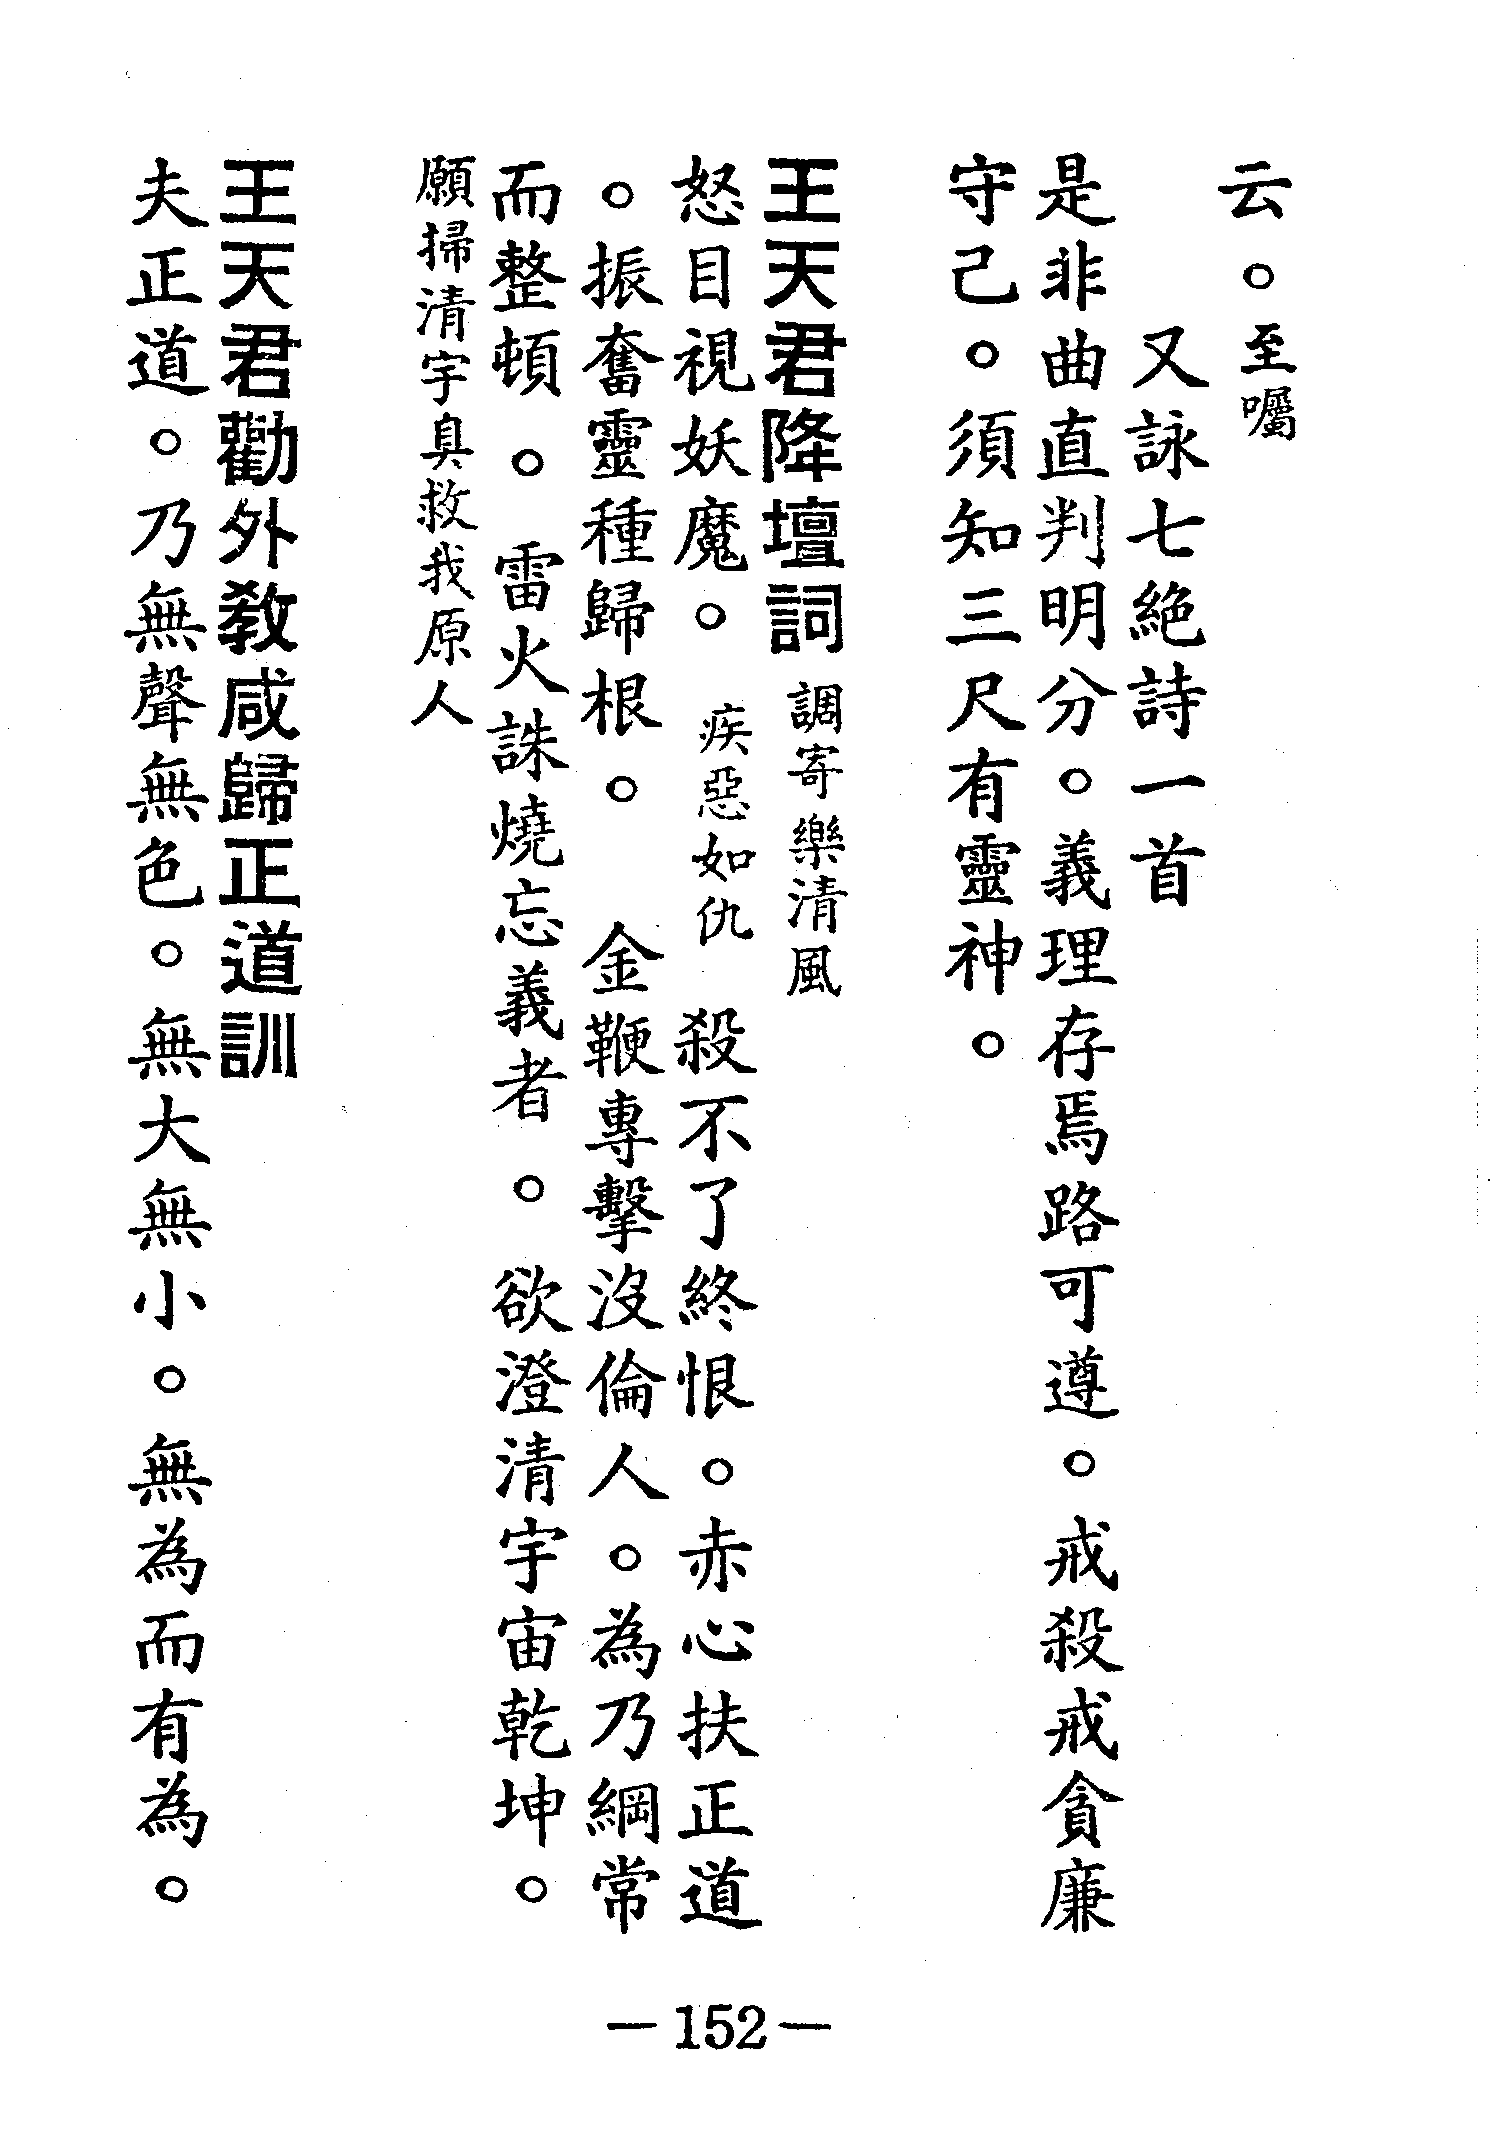 云。至囑
又詠七絕詩一首
是非曲直判明分。義理存焉路可遵。戒殺戒貪廉
守己。須知三尺有靈神。
王天君降壇詞 調寄樂清風
怒目視妖魔。 疾惡如仇 殺不了終恨。赤心扶正道
。振奮靈種歸根。 金鞭專擊沒倫人。為乃綱常
而整頓。雷火誅燒忘義者。欲澄清宇宙乾坤。
願掃清宇臭救我原人
王天君勸外教咸歸正道訓
夫正道。乃無聲無色。無大無小。無為而有為。
—152—